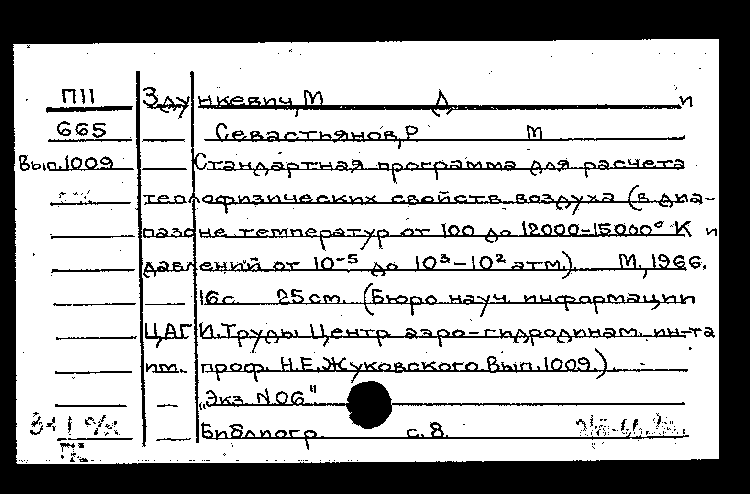 П11 Здункевич, М Д и
665 Севастьянов, Р М
Вып.1009 Стандартная программа для расчета
теплофизических свойств воздуха (в диа-
пазоне температур от 100 до 12000-15000° К и
давлений от 10-5 до 10³-10² атм.) М., 1966.
16с. 25 cm. (Бюро науч. информации
ЦАГИ. Труды Центр аэро-гидродинам. ин-та
им. проф. Н.Е.Жуковского. Вып.1009.)
„Экз. N 06"
Библиогр. с. 8.